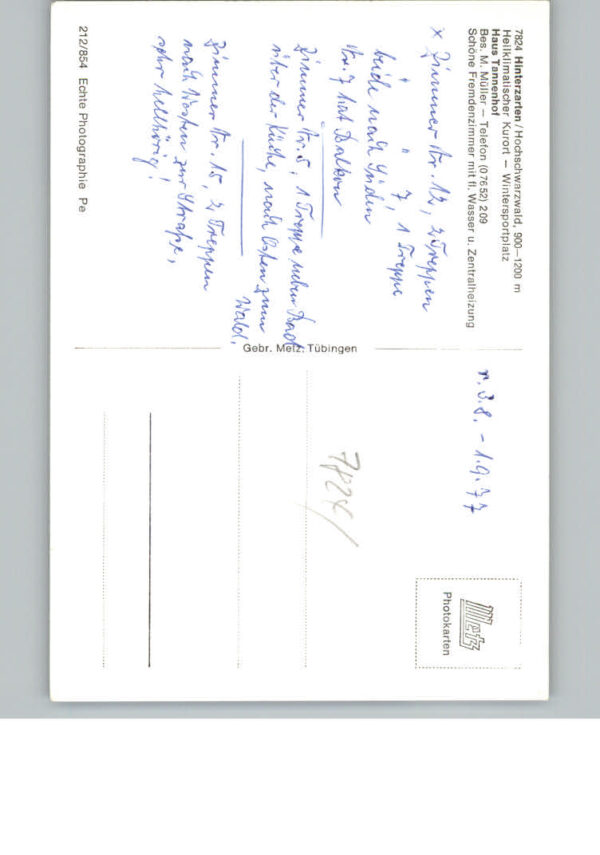 7824 Hinterzarten/Hochschwarzwald, 900–1200 m
Heilklimatischer Kurort – Wintersportplatz
Haus Tannenhof
Bes. M. Müller – Telefon (07652) 209
Schöne Fremdenzimmer mit fl. Wasser u. Zentralheizung
x Zimmer Nr. 12, 2 Treppen
" " 7, 1 Treppe
beide nach Süden
Nr. 7 hat Balkon
Zimmer Nr. 5, 1 Treppe neben Bad
über der Küche, nach Osten zum
Wald.
Zimmer Nr. 15, 2 Treppen
nach Westen zur Straße,
sehr hellhörig!
212/854 Echte Photographie Pe
Gebr. Metz, Tübingen
v. 3.8. - 1.9.77
7824/
Metz
Photokarten